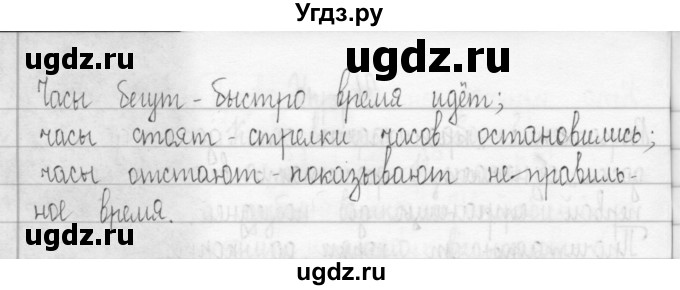 Угдз.ру
ugdz.ru ugdz.ru
Часы бегут - быстро время идёт;
часы стоят - стрелки часов остановились;
часы отстают - показывают неправиль-
ное время.
ugdz.ru ugdz.ru
ugdz.ru